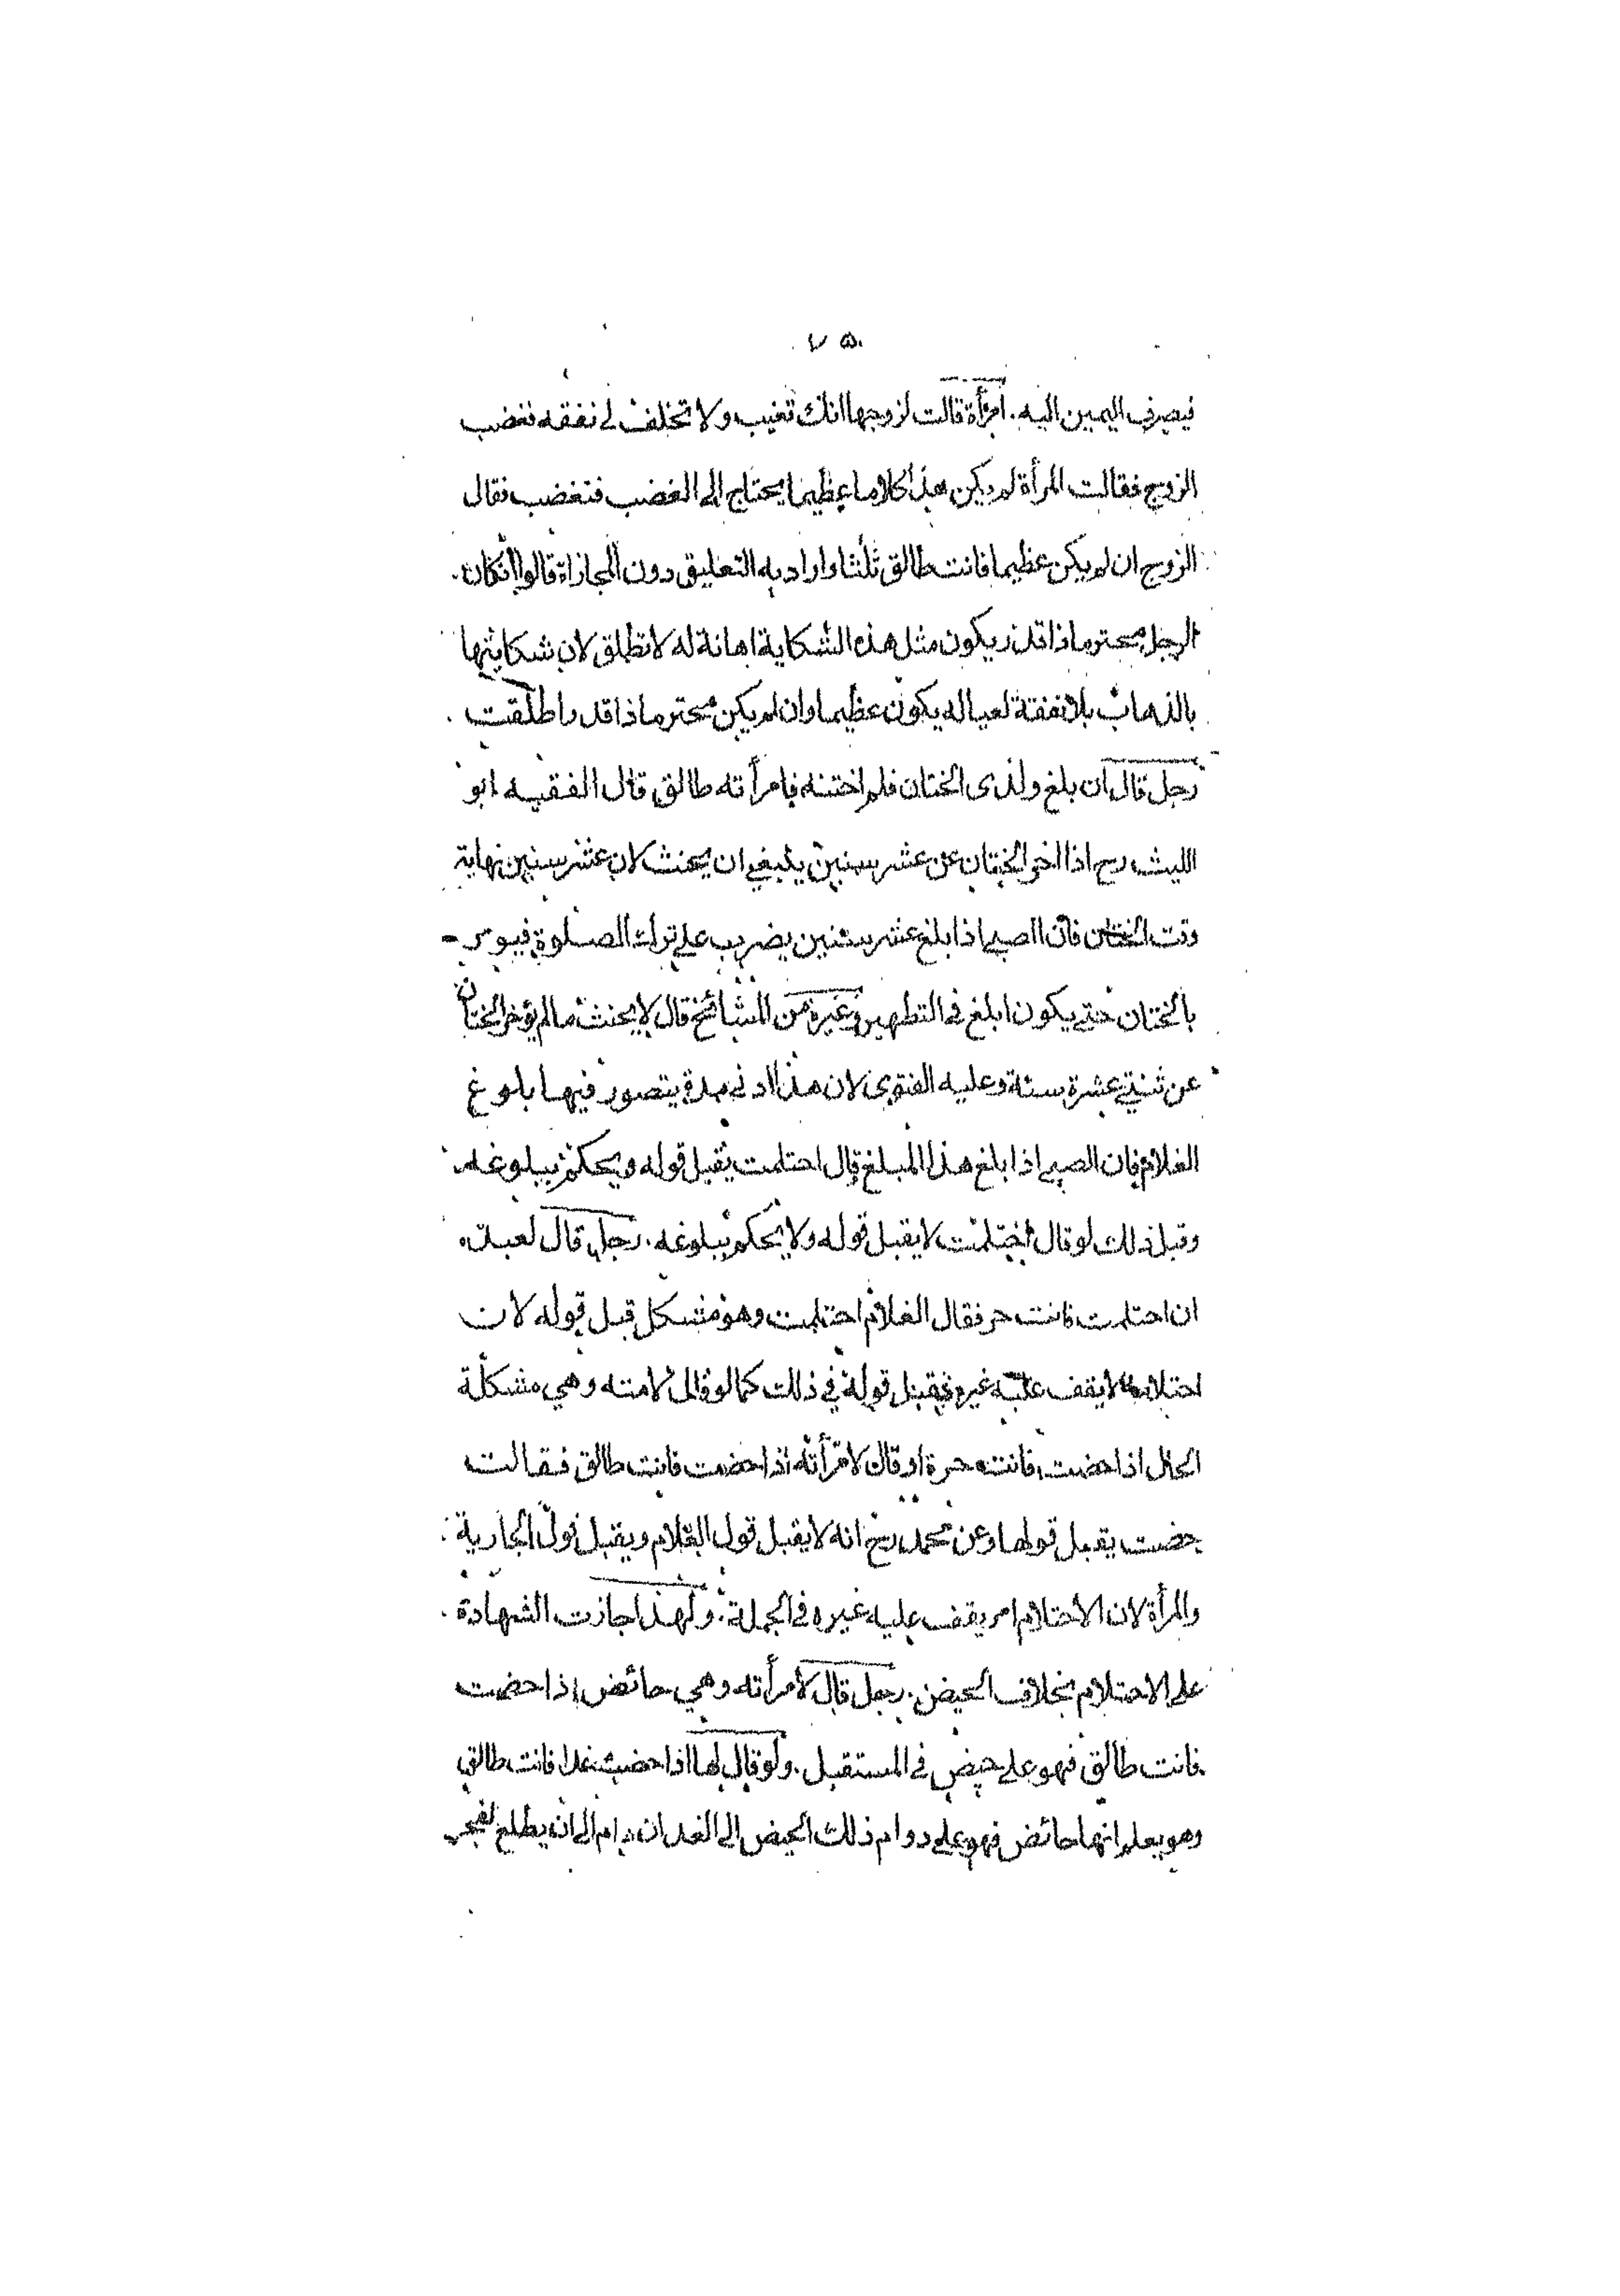 ٧٥
فيصرف اليمين اليه . امرأة قالت لزوجها انك تغيب ولا تخلف لى نفقه فغضب
الزوج فقالت المرأة لم يكن هذا كلاما عظيما يحتاج الى الغضب فتغضب فقال
الزوج ان لم يكن عظيما فانت طالق ثلثا واراد به التعليق دون المجازاة قالوا ان كان
الرجل محترما ذا قدر يكون مثل هذه الشكاية اهانة له لا تطلق لان شكايتها
بالذهاب بلا نفقة لعياله يكون عظيما وان لم يكن محترما ذا قدر طلقت .
رجل قال ان بلغ ولدى الختان فلم اختنه فامرأته طالق قال الفقيه ابو
الليث رح اذا اخر الختان عن عشر سنين ينبغي ان يحنث لان عشر سنين نهاية
وقت الختان فان الصبي اذا بلغ عشر سنين يضرب على ترك الصلوة فيومر
بالختان حتى يكون ابلغ في التطهير وغيره من المشائخ قال لا يحنث ما لم يؤخر الختان
عن ثنتي عشرة سنة وعليه الفتوى لان هذا ادنى مدة يتصور فيها بلوغ
الغلام فان الصبي اذا بلغ هذا المبلغ قال احتلمت يقبل قوله ويحكم ببلوغه
وقبل ذلك لو قال احتلمت لا يقبل قوله ولا يحكم ببلوغه . رجل قال لعبده
ان احتلمت فانت حر فقال الغلام احتلمت وهو مشكل قبل قوله لان
احتلامه لا يقف عليه غيره فيقبل قوله في ذلك كما لو قال لامته وهي مشكلة
الحال اذا حضت فانت حرة او قال لامرأته اذا حضت فانت طالق فقالت
حضت يقبل قولها وعن محمد رح انه لا يقبل قول الغلام ويقبل قول الجارية
والمرأة لان الاحتلام امر يقف عليه غيره في الجملة . ولهذا جازت الشهادة
على الاحتلام بخلاف الحيض . رجل قال لامرأته وهي حائض اذا حضت
فانت طالق فهو على حيض في المستقبل . ولو قال لها اذا حضت غدا فانت طالق
وهو يعلم انها حائض فهو على دوام ذلك الحيض الى الغد ان دام الى ان يطلع الفجر